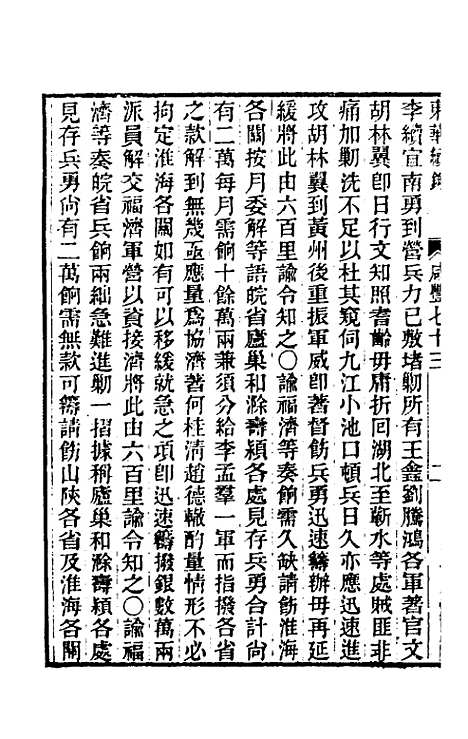 東華續錄 咸豐七十三 二
李續宜南勇到營兵力已敷堵勦所有王鑫劉騰鴻各軍著官文
胡林翼卽日行文知照耆齡毋庸折回湖北至蘄水等處賊匪非
痛加勦洗不足以杜其窺伺九江小池口頓兵日久亦應迅速進
攻胡林翼到黃州後重振軍威卽著督飭兵勇迅速籌辦毋再延
緩將此由六百里諭令知之○諭福濟等奏餉需久缺請飭淮海
各關按月委解等語皖省廬巢和滁壽潁各處見存兵勇合計尙
有二萬每月需餉十餘萬兩兼須分給李孟羣一軍而指撥各省
之款解到無幾亟應量爲協濟著何桂淸趙德轍酌量情形不必
拘定淮海各關如有可以移緩就急之項卽迅速籌撥銀數萬兩
派員解交福濟軍營以資接濟將此由六百里諭令知之○諭福
濟等奏皖省兵餉兩絀急難進勦一摺據稱廬巢和滁壽潁各處
見存兵勇尙有二萬餉需無款可籌請飭山陝各省及淮海各關